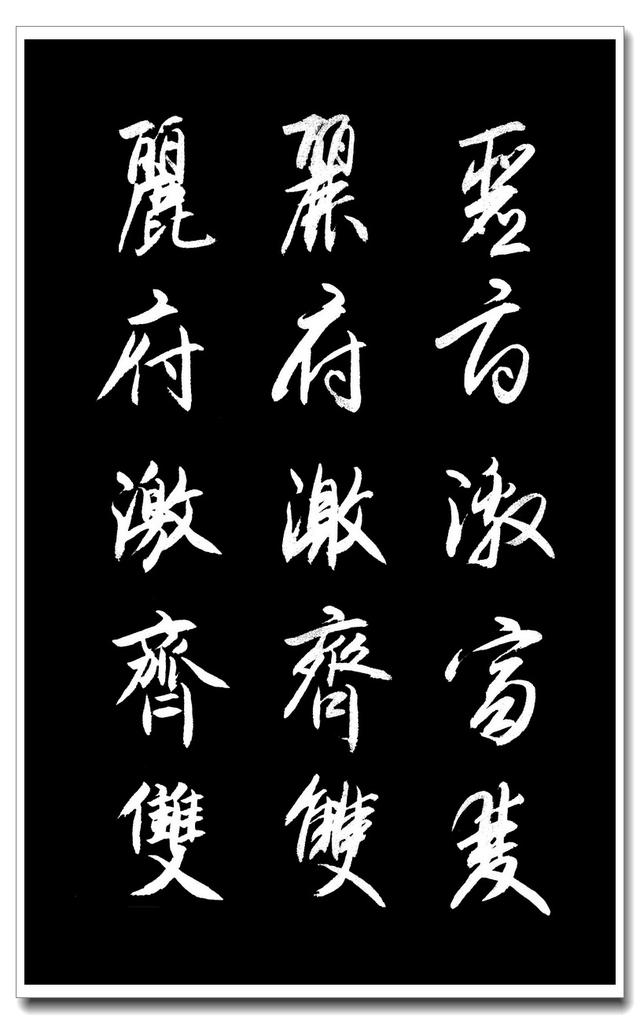 麗府激齊雙
麗府激齊雙
麗府激齊雙